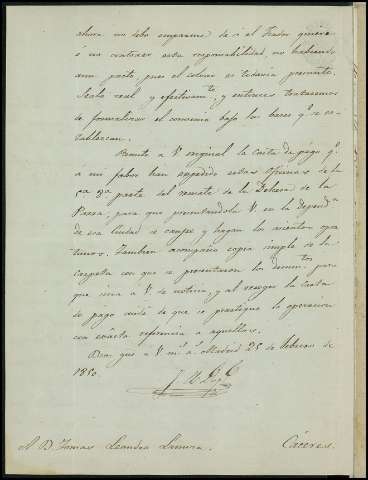 ahora no debo empeñarme de si el Tesoro quiere
ó no contraer esta responsabilidad no habiendo
aun pacto, pues el colono es todavia presunto.
Sealo real y efectivam.te, y entonces trataremos
de formalizar el convenio bajo las bases q.e se es-
tablezcan.
Remito a V. original la carta de pago q.e
á mi favor han expedido estas Oficinas de la
5.a 8.a parte del remate de la Dehesa de la
Parra, para que presentandola V. en la depend.a
de esa Ciudad se canjee y hagan los asientos opor
tunos. Tambien acompaño copia simple de la
Carpeta con que se presentaron los docum.tos para
que sirva a V. de noticia, y al recoger la carta
de pago cuide de que se practique la operacion
con exácta referencia a aquellos.
Dios gue a V. m.s a.s Madrid 25 de febrero de
1850.
S. D. Tomas Leandro Cáceres.